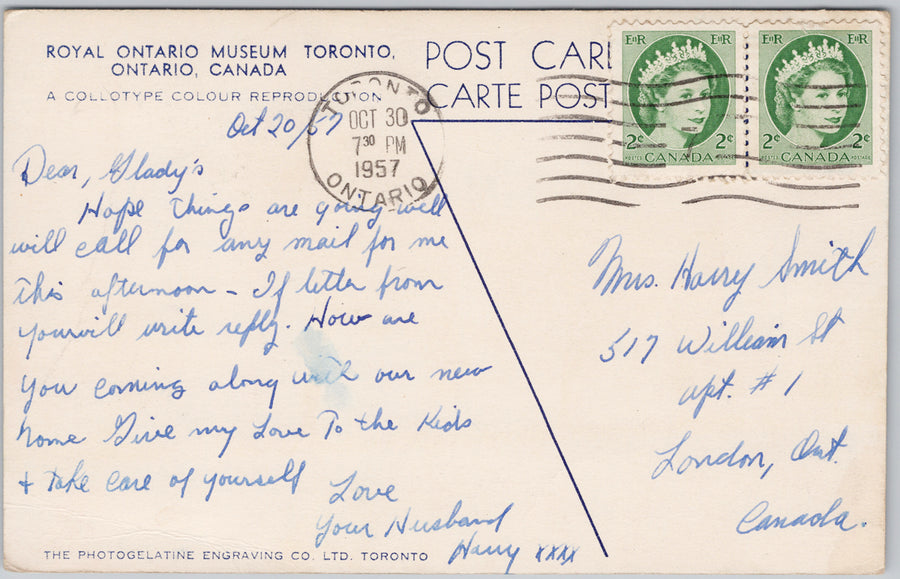 ROYAL ONTARIO MUSEUM TORONTO,
ONTARIO, CANADA
A COLLOTYPE COLOUR REPRODUCTION
POST CAR
CARTE POST
TORONTO
OCT 30
7 30 PM
1957
ONTARIO
EIIR EIIR
2¢ 2¢
POSTES CANADA POSTAGE
EIIR EIIR
2¢ 2¢
POSTES CANADA POSTAGE
Oct 20/57
Dear, Glady's
Hope things are going well
will call for any mail for me
this afternoon - If letter from
you will write reply. How are
you coming along with our new
home Give my Love To the Kids
+ take care of yourself
Love
Your Husband
Harry xxxx
Mrs. Harry Smith
517 William St
apt. # 1
London, Ont.
Canada.
THE PHOTOGELATINE ENGRAVING CO. LTD. TORONTO